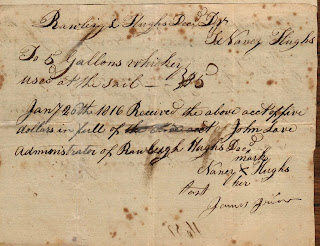 Rawleigh Hughs Decd Dr
To Nancy Hughs
To 5 Gallons whiskey
used at the sail — $5
Jany 26th 1816 Received the above acct of five
dollars in full of John Love
Admonistrator of Rawleigh Hughs Decd
mark
Nancy X Hughs
her
Test
James